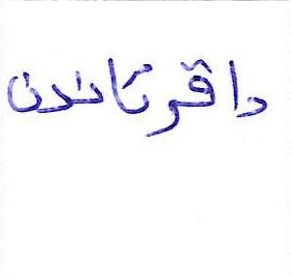 داقرتاندن